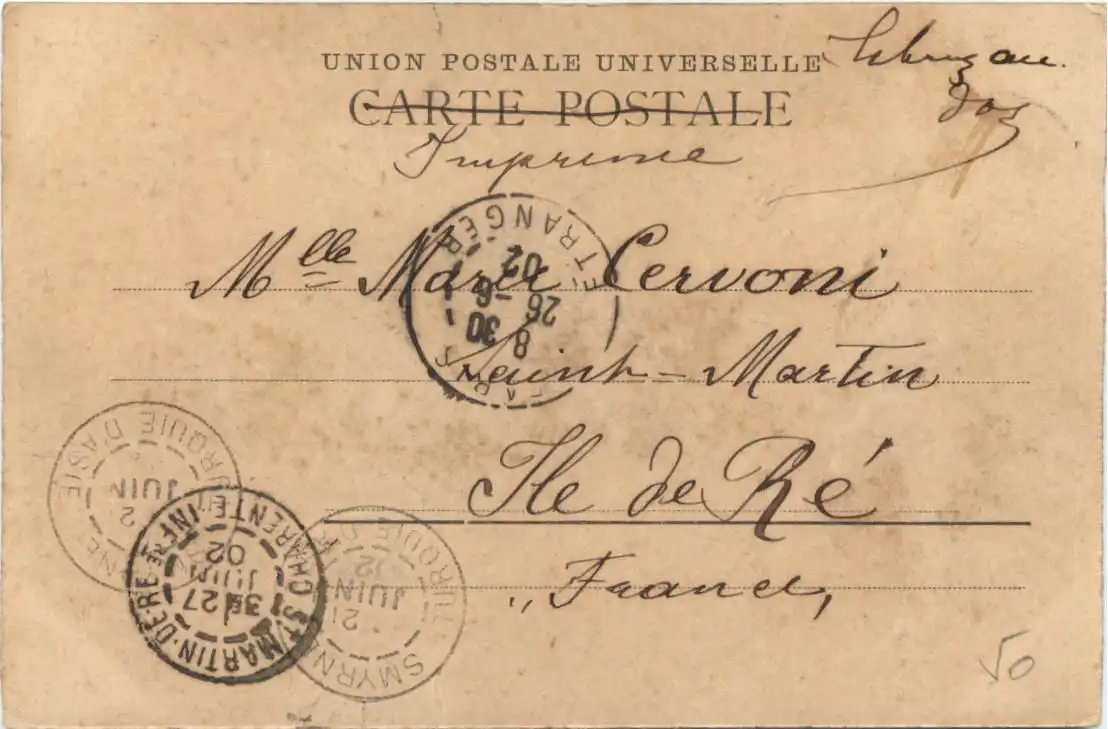 UNION POSTALE UNIVERSELLE
CARTE POSTALE
Imprimé
dos
Mlle Marie Cervoni
Saint-Martin
Ile de Ré
France,
PARIS ETRANGER
8 30
26 -6
02
SMYRNE TURQUIE D'ASIE
2
JUIN
ST MARTIN-DE-RE CHARENTE INFRE
3E 27
JUIN
02
SMYRNE TURQUIE D'ASIE
21
JUIN
02
50